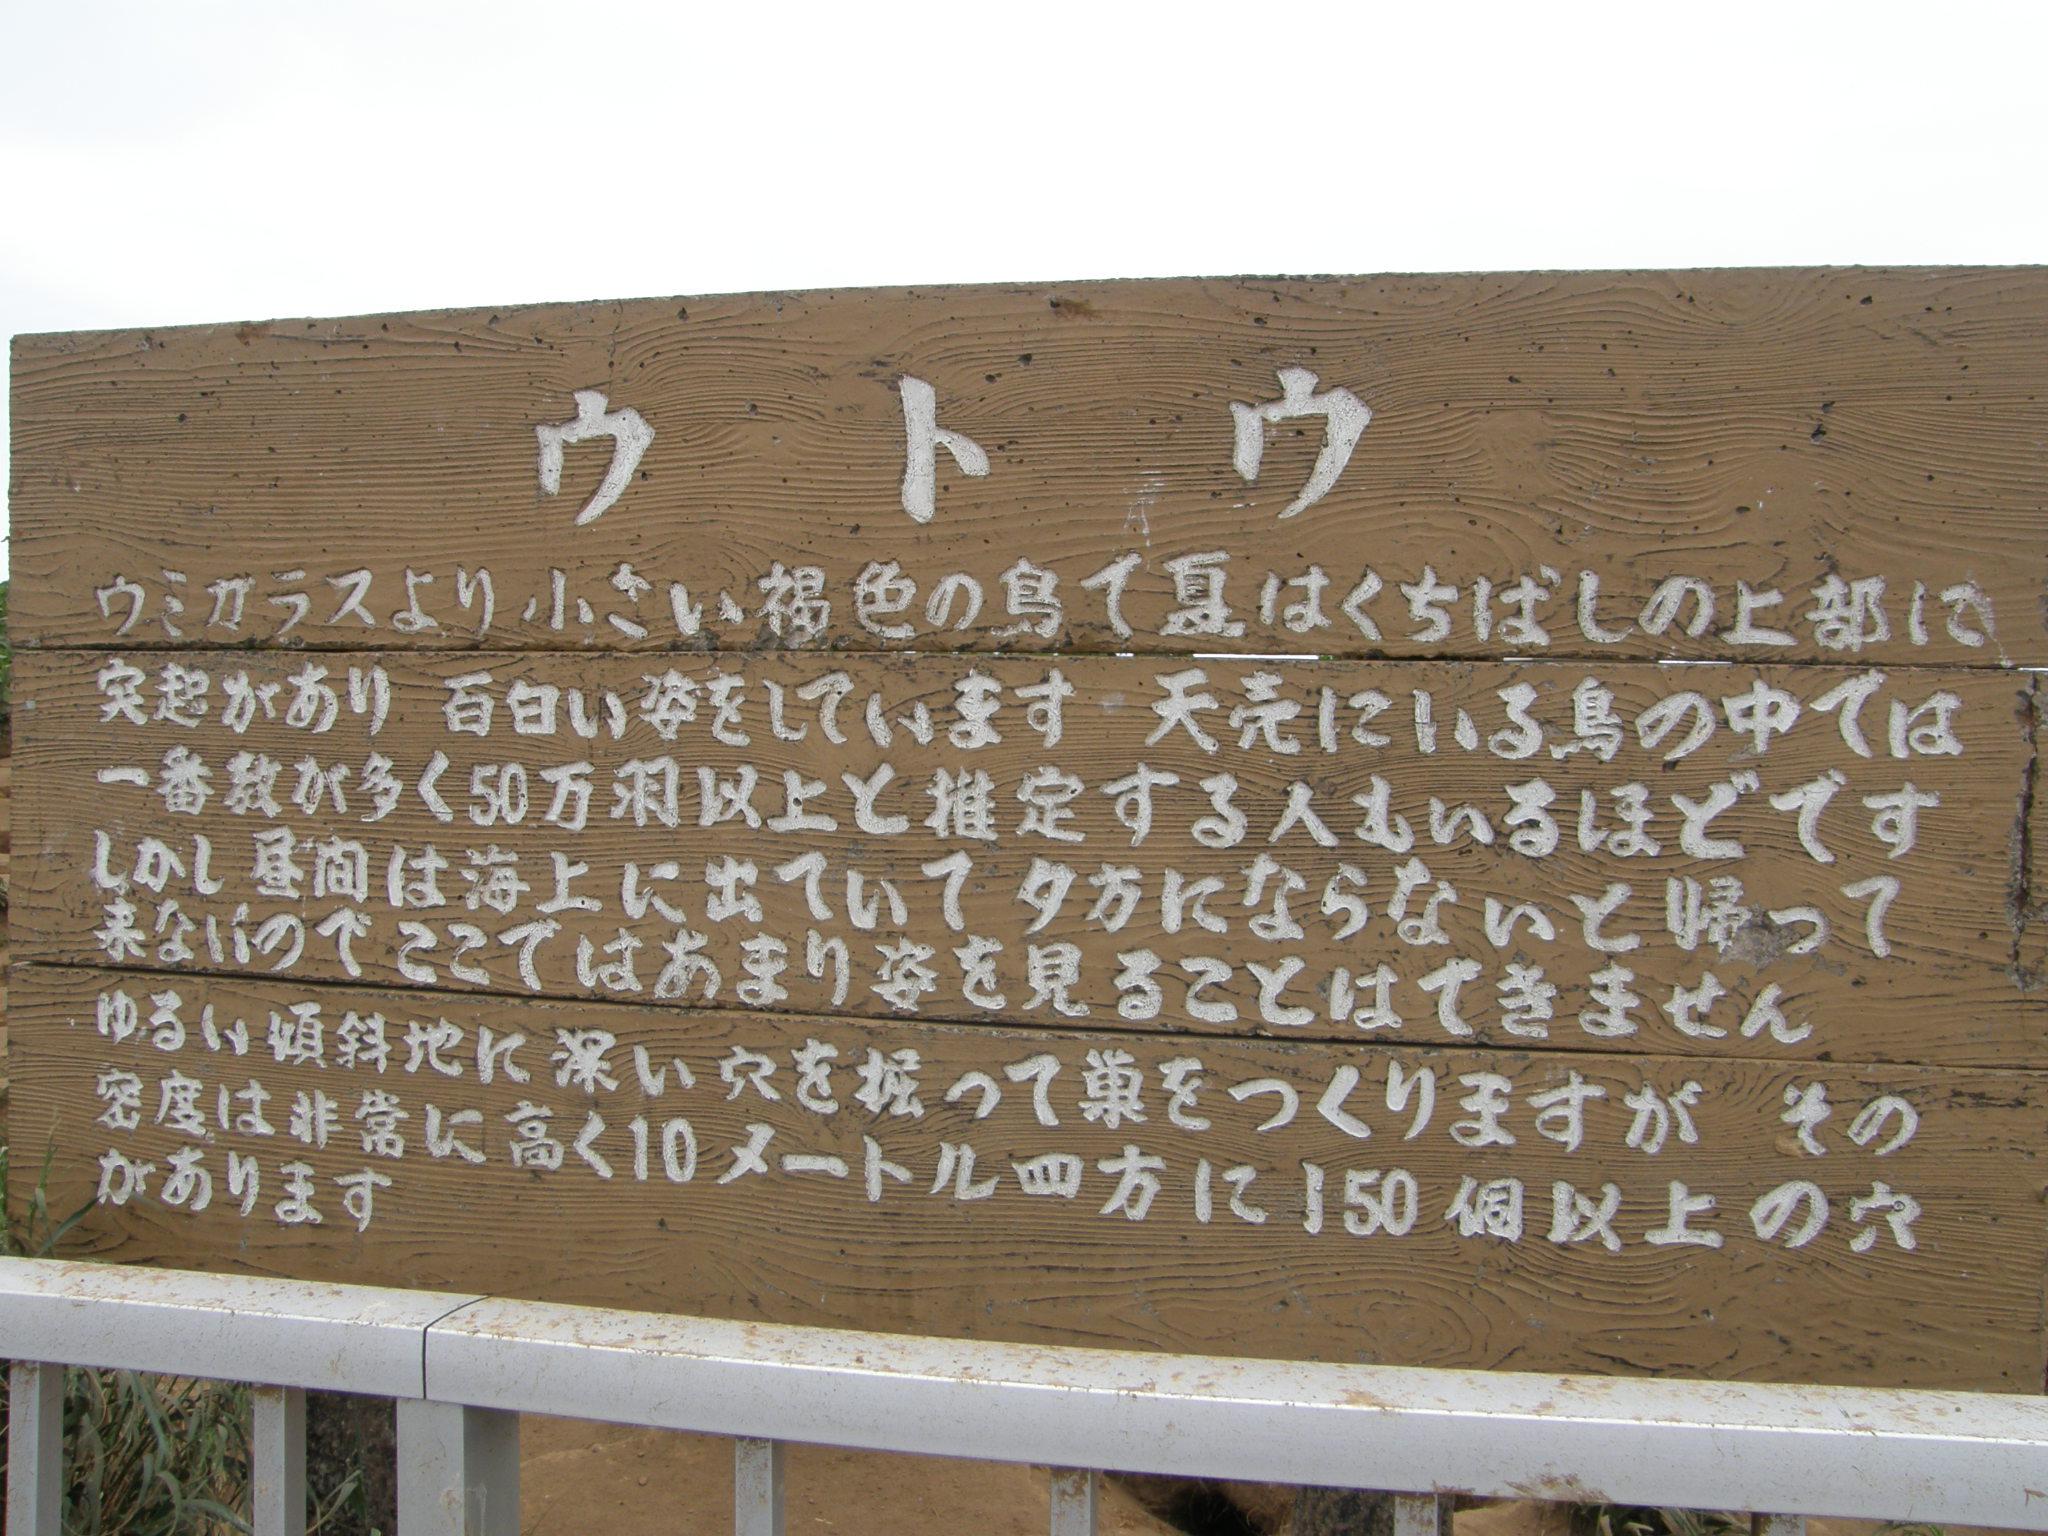 ウトウ
ウミガラスより小さい褐色の鳥で夏はくちばしの上部に
突起があり 百白い姿をしています 天売にいる鳥の中では
一番数が多く50万羽以上と推定する人もいるほどです
しかし昼間は海上に出ていて夕方にならないと帰って
来ないのでここではあまり姿を見ることはできません
ゆるい傾斜地に深い穴を掘って巣をつくりますが その
密度は非常に高く10メートル四方に150個以上の穴
があります